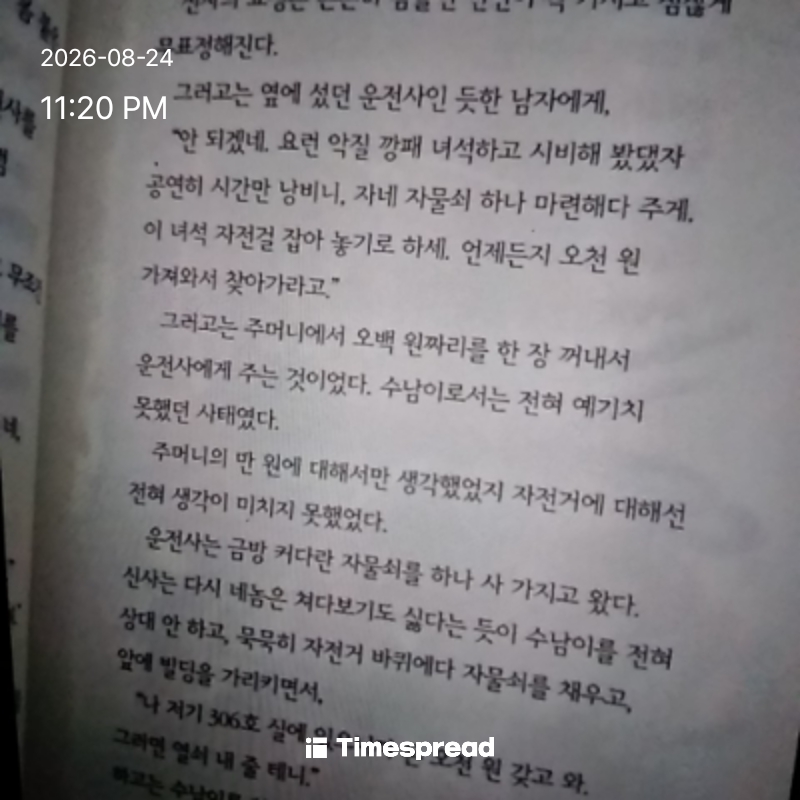 2026-08-24
11:20 PM
무표정해진다.
그러고는 옆에 섰던 운전사인 듯한 남자에게,
"안 되겠네. 요런 악질 깡패 녀석하고 시비해 봤댔자
공연히 시간만 낭비니, 자네 자물쇠 하나 마련해다 주게.
이 녀석 자전걸 잡아 놓기로 하세. 언제든지 오천 원
가져와서 찾아가라고."
그러고는 주머니에서 오백 원짜리를 한 장 꺼내서
운전사에게 주는 것이었다. 수남이로서는 전혀 예기치
못했던 사태였다.
주머니의 만 원에 대해서만 생각했었지 자전거에 대해선
전혀 생각이 미치지 못했었다.
운전사는 금방 커다란 자물쇠를 하나 사 가지고 왔다.
신사는 다시 네놈은 쳐다보기도 싫다는 듯이 수남이를 전혀
상대 안 하고, 묵묵히 자전거 바퀴에다 자물쇠를 채우고,
앞에 빌딩을 가리키면서,
"나 저기 306호 실에 오천 원 갖고 와.
그러면 열쇠 내 줄 테니."
하고는 수남이를
Timespread